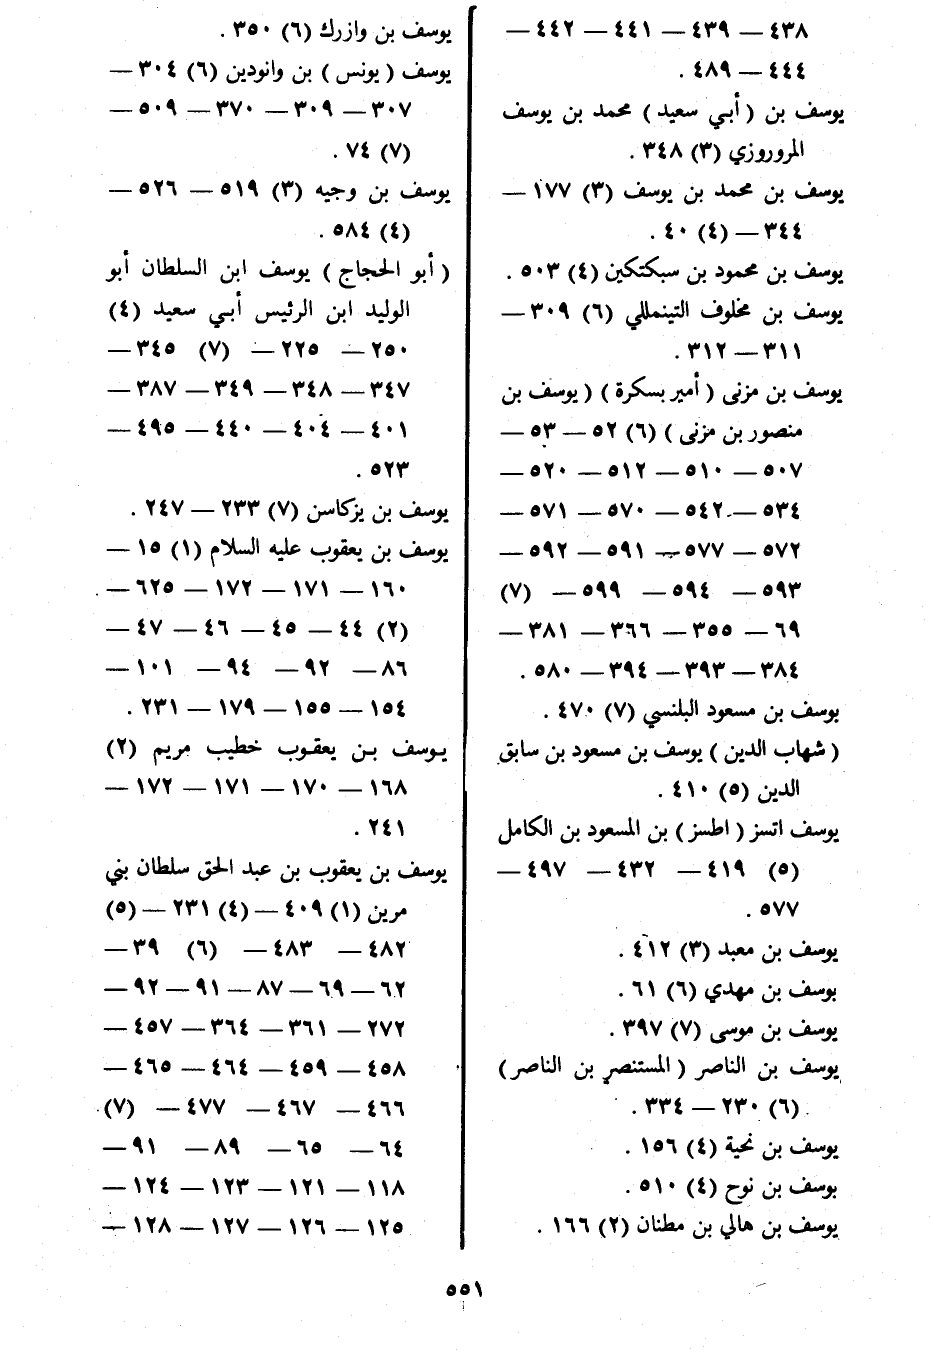 ٤٣٨ — ٤٣٩ — ٤٤١ — ٤٤٢ —
٤٤٤ — ٤٨٩ .
يوسف بن ( أبي سعيد ) محمد بن يوسف
المروروزي (٣) ٣٤٨ .
يوسف بن محمد بن يوسف (٣) ١٧٧ —
٣٤٤ — (٤) ٤٠ .
يوسف بن محمود بن سبكتكين (٤) ٥٠٣ .
يوسف بن مخلوف التينمللي (٦) ٣٠٩ —
٣١١ — ٣١٢ .
يوسف بن مزنى ( أمير بسكرة ) ( يوسف بن
منصور بن مزنى ) (٦) ٥٢ — ٥٣ —
٥٠٧ — ٥١٠ — ٥١٢ — ٥٢٠ —
٥٣٤ — ٥٤٢ — ٥٧٠ — ٥٧١ —
٥٧٢ — ٥٧٧ — ٥٩١ — ٥٩٢ —
٥٩٣ — ٥٩٤ — ٥٩٩ — (٧)
٦٩ — ٣٥٥ — ٣٦٦ — ٣٨١ —
٣٨٤ — ٣٩٣ — ٣٩٤ — ٥٨٠ .
يوسف بن مسعود البلنسي (٧) ٤٧٠ .
( شهاب الدين ) يوسف بن مسعود بن سابق
الدين (٥) ٤١٠ .
يوسف اتسز ( اطسز ) بن المسعود بن الكامل
(٥) ٤١٩ — ٤٣٢ — ٤٩٧ —
٥٧٧ .
يوسف بن معبد (٣) ٤١٢ .
يوسف بن مهدي (٦) ٦١ .
يوسف بن موسى (٧) ٣٩٧ .
يوسف بن الناصر ( المستنصر بن الناصر )
(٦) ٢٣٠ — ٣٣٤ .
يوسف بن نحية (٤) ١٥٦ .
يوسف بن نوح (٤) ٥١٠ .
يوسف بن هالي بن مطنان (٢) ١٦٦ .
يوسف بن وازرك (٦) ٣٥٠ .
يوسف ( يونس ) بن وانودين (٦) ٣٠٤ —
٣٠٧ — ٣٠٩ — ٣٧٠ — ٥٠٩ —
(٧) ٧٤ .
يوسف بن وجيه (٣) ٥١٩ — ٥٢٦ —
(٤) ٥٨٤ .
( أبو الحجاج ) يوسف ابن السلطان أبو
الوليد ابن الرئيس أبي سعيد (٤)
٢٥٠ — ٢٢٥ — (٧) ٣٤٥ —
٣٤٧ — ٣٤٨ — ٣٤٩ — ٣٨٧ —
٤٠١ — ٤٠٤ — ٤٤٠ — ٤٩٥ —
٥٢٣ .
يوسف بن يزكاسن (٧) ٢٣٣ — ٢٤٧ .
يوسف بن يعقوب عليه السلام (١) ١٥ —
١٦٠ — ١٧١ — ١٧٢ — ٦٢٥ —
(٢) ٤٤ — ٤٥ — ٤٦ — ٤٧ —
٨٦ — ٩٢ — ٩٤ — ١٠١ —
١٥٤ — ١٥٥ — ١٧٩ — ٢٣١ .
يوسف بن يعقوب خطيب مريم (٢)
١٦٨ — ١٧٠ — ١٧١ — ١٧٢ —
٢٤١ .
يوسف بن يعقوب بن عبد الحق سلطان بني
مرين (١) ٤٠٩ — (٤) ٢٣١ — (٥)
٤٨٢ — ٤٨٣ — (٦) ٣٩ —
٦٢ — ٦٩ — ٨٧ — ٩١ — ٩٢ —
٢٧٢ — ٣٦١ — ٣٦٤ — ٤٥٧ —
٤٥٨ — ٤٥٩ — ٤٦٤ — ٤٦٥ —
٤٦٦ — ٤٦٧ — ٤٧٧ — (٧)
٦٤ — ٦٥ — ٨٩ — ٩١ —
١١٨ — ١٢١ — ١٢٣ — ١٢٤ —
١٢٥ — ١٢٦ — ١٢٧ — ١٢٨ —
٥٥١